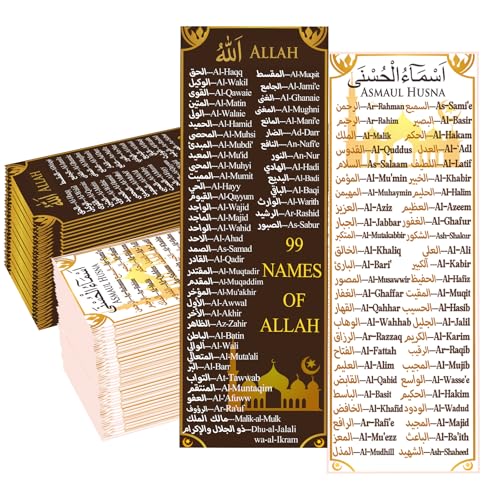 اَللّٰهُ ALLAH
الحق—Al-Haqq
الوكيل—Al-Wakil
القوى—Al-Qawaie
المتين—Al-Matin
الولى—Al-Walaie
الحميد—Al-Hamid
المحصى—Al-Muhsi
المبدئ—Al-Mubdi'
المعيد—Al-Mu'id
المحيي—Al-Muhyi
المميت—Al-Mumit
الحي—Al-Hayy
القيوم—Al-Qayum
الواجد—Al-Wajid
الماجد—Al-Majid
الواحد—Al-Wahid
الاحد—Al-Ahad
الصمد—As-Samad
القادر—Al-Qadir
المقتدر—Al-Muqtadir
المقدم—Al-Muqaddim
المؤخر—Al-Mu'akhir
الأول—Al-Awwal
الآخر—Al-Akhir
الظاهر—Az-Zahir
الباطن—Al-Batin
الوالي—Al-Wali
المتعالي—Al-Muta'ali
البر—Al-Barr
التواب—At-Tawwab
المنتقم—Al-Muntaqim
العفو—Al-'Afuww
الرؤوف—Ar-Ra'uf
مالك الملك—Malik-al-Mulk
ذو الجلال والإكرام—Dhu-al-Jalali
wa-al-Ikram
المقسط—Al-Muqsit
الجامع—Al-Jami'e
الغنى—Al-Ghanaie
المغنى—Al-Mughni
المانع—Al-Mani'e
الضار—Ad-Darr
النافع—An-Naff'e
النور—An-Nur
الهادي—Al-Hadi
البديع—Al-Badi
الباقي—Al-Baqi
الوارث—Al-Warith
الرشيد—Ar-Rashid
الصبور—As-Sabur
99
NAMES
OF
ALLAH
اَسْمَاءُ الْحُسْنَى
ASMAUL HUSNA
الرحمن—Ar-Rahman
الرحيم—Ar-Rahim
الملك—Al-Malik
القدوس—Al-Quddus
السلام—As-Salaam
المؤمن—Al-Mu'min
المهيمن—Al-Muhaymin
العزيز—Al-Aziz
الجبار—Al-Jabbar
المتكبر—Al-Mutakabbir
الخالق—Al-Khaliq
البارئ—Al-Bari'
المصور—Al-Musawwir
الغفار—Al-Ghaffar
القهار—Al-Qahhar
الوهاب—Al-Wahhab
الرزاق—Ar-Razzaq
الفتاح—Al-Fattah
العليم—Al-Alim
القابض—Al-Qabid
الباسط—Al-Basit
الخافض—Al-Khafid
الرافع—Ar-Rafi'e
المعز—Al-Mu'ezz
المذل—Al-Mudhill
السميع—As-Sami'e
البصير—Al-Basir
الحكم—Al-Hakam
العدل—Al-Adl
اللطيف—Al-Latif
الخبير—Al-Khabir
الحليم—Al-Halim
العظيم—Al-Azeem
الغفور—Al-Ghafur
الشكور—Ash-Shakur
العلي—Al-Ali
الكبير—Al-Kabir
الحفيظ—Al-Hafiz
المقيت—Al-Muqit
الحسيب—Al-Hasib
الجليل—Al-Jalil
الكريم—Al-Karim
الرقيب—Ar-Raqib
المجيب—Al-Mujib
الواسع—Al-Wasse'e
الحكيم—Al-Hakim
الودود—Al-Wadud
المجيد—Al-Majid
الباعث—Al-Ba'ith
الشهيد—Ash-Shaheed